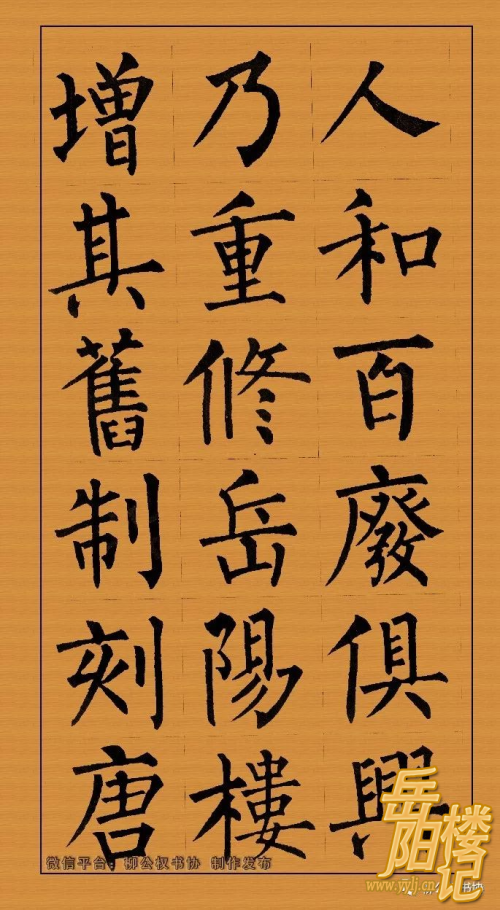 人和百廢俱興
乃重修岳陽樓
增其舊制刻唐
微信平台：柳公权书协 制作发布
岳阳楼记
www.yylj.cn